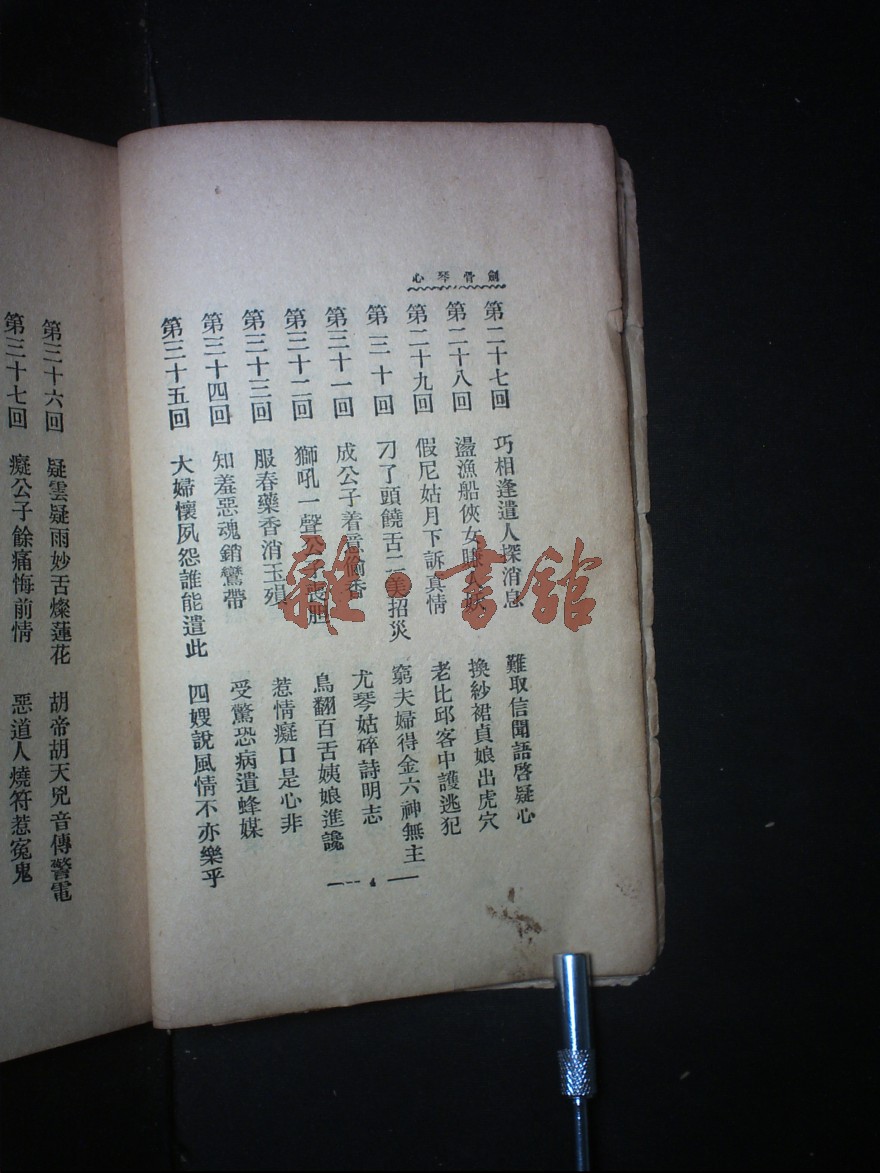 劍骨琴心
第二十七回 巧相逢遣人探消息 難取信聞語啓疑心
第二十八回 盪漁船俠女賺人妖 換紗裙貞娘出虎穴
第二十九回 假尼姑月下訴真情 老比邱客中護逃犯
第三十回 刁了頭饒舌二美招災 窮夫婦得金六神無主
第三十一回 成公子着意偷香 尤琴姑碎詩明志
第三十二回 獅吼一聲公子喪胆 鳥翻百舌姨娘進讒
第三十三回 服春藥香消玉殞 惹情癡口是心非
第三十四回 知羞惡魂銷鸞帶 受驚恐病遣蜂媒
第三十五回 大婦懷夙怨誰能遣此 四嫂說風情不亦樂乎
第三十六回 疑雲疑雨妙舌燦蓮花 胡帝胡天兇音傳警電
第三十七回 癡公子餘痛悔前情 惡道人燒符惹冤鬼
雜·書館